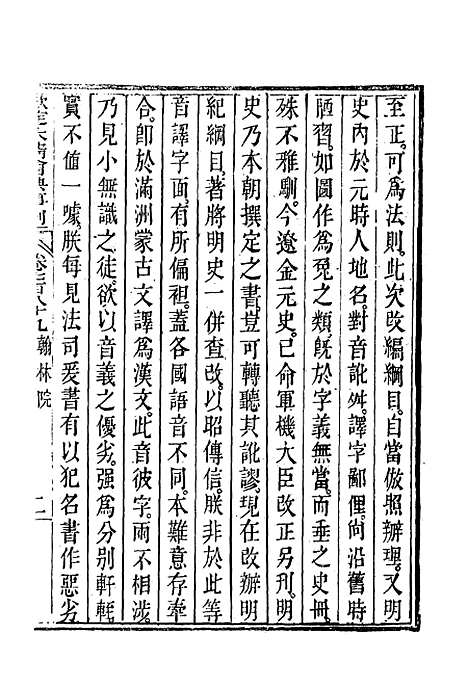 至正。可為法則。此次改編綱目。自當倣照辦理。又明
史內於元時人地名。對音訛舛。譯字鄙俚。尚沿舊時
陋習。如圖作為兔之類。旣於字義無當。而垂之史冊。
殊不雅馴。今遼金元史。已命軍機大臣改正另刊。明
史乃本朝撰定之書。豈可轉聽其訛謬。現在改辦明
紀綱目。著將明史一併查改。以昭傳信。朕非於此等
音譯字面。有所偏袒。蓋各國語音不同。本難意存牽
合。卽於滿洲蒙古文譯為漢文。此音彼字。兩不相涉。
乃見小無識之徒。欲以音義之優劣。强為分別軒輊。
實不值一噱。朕每見法司爰書有以犯名書作惡劣
欽定大清會典事例 卷一千四十九 翰林院 二